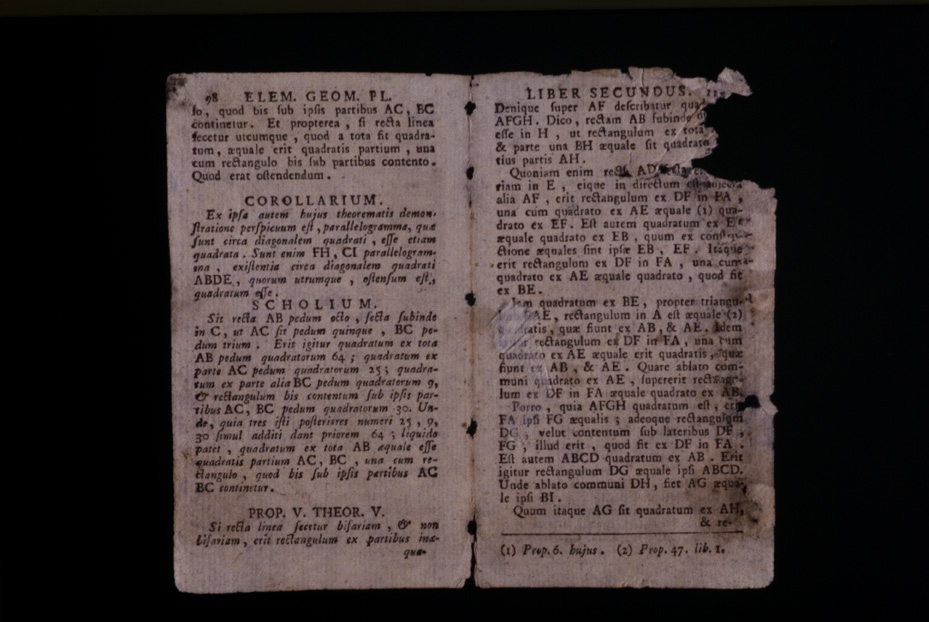 98 ELEM. GEOM. PL.
ſo, quod bis ſub ipſis partibus AC, BC
continetur. Et propterea, ſi recta linea
ſecetur utcumque, quod a tota fit quadra-
tum, æquale erit quadratis partium, una
cum rectangulo bis ſub partibus contento.
Quod erat oſtendendum.
COROLLARIUM.
Ex ipſa autem hujus theorematis demon-
ſtratione perſpicuum eſt, parallelogramma, quæ
ſunt circa diagonalem quadrati, eſſe etiam
quadrata. Sunt enim FH, CI parallelogram-
ma, exiſtentia circa diagonalem quadrati
ABDE, quorum utrumque, oſtenſum eſt,
quadratum eſſe.
SCHOLIUM.
Sit recta AB pedum octo, ſecta ſubinde
in C, ut AC ſit pedum quinque, BC pe-
dum trium. Erit igitur quadratum ex tota
AB pedum quadratorum 64; quadratum ex
parte AC pedum quadratorum 25; quadra-
tum ex parte alia BC pedum quadratorum 9,
& rectangulum bis contentum ſub ipſis par-
tibus AC, BC pedum quadratorum 30. Un-
de, quia tres iſti poſteriores numeri 25, 9,
30 ſimul additi dant priorem 64; liquido
patet, quadratum ex tota AB æquale eſſe
quadratis partium AC, BC, una cum re-
ctangulo, quod bis ſub ipſis partibus AC
BC continetur.
PROP. V. THEOR. V.
Si recta linea ſecetur biſariam, & non
biſariam, erit rectangulum ex partibus inæ-
qua-
LIBER SECUNDUS.
Denique ſuper AF deſcribatur
AFGH. Dico, rectam AB ſubinde
eſſe in H, ut rectangulum ex tota
& parte una BH æquale ſit quadrato
tius partis AH.
Quoniam enim recta AD
riam in E, eique in directum eſt adjecta
alia AF, erit rectangulum ex DF in FA,
una cum quadrato ex AE æquale (1) qua-
drato ex EF. Eſt autem quadratum ex EF
æquale quadrato ex EB, quum ex conſtru-
ctione æquales ſint ipſæ EB, EF. Itaque
erit rectangulum ex DF in FA, una cum
quadrato ex AE æquale quadrato, quod fit
ex BE.
Jam quadratum ex BE, propter triangu-
BAE, rectangulum in A eſt æquale (2)
quadratis, quæ fiunt ex AB, & AE. Idem
rectangulum ex DF in FA, una cum
quadrato ex AE æquale erit quadratis, quæ
fiunt ex AB, & AE. Quare ablato com-
muni quadrato ex AE, ſupererit rectangu-
lum ex DF in FA æquale quadrato ex AB.
Porro, quia AFGH quadratum eſt, erit
FA ipſi FG æqualis; adeoque rectangulum
DG, velut contentum ſub lateribus DF,
FG, illud erit, quod fit ex DF in FA.
Eſt autem ABCD quadratum ex AB. Erit
igitur rectangulum DG æquale ipſi ABCD.
Unde ablato communi DH, fiet AG æqua-
le ipſi BI.
Quum itaque AG ſit quadratum ex AH,
& re-
(1) Prop. 6. hujus. (2) Prop. 47. lib. 1.